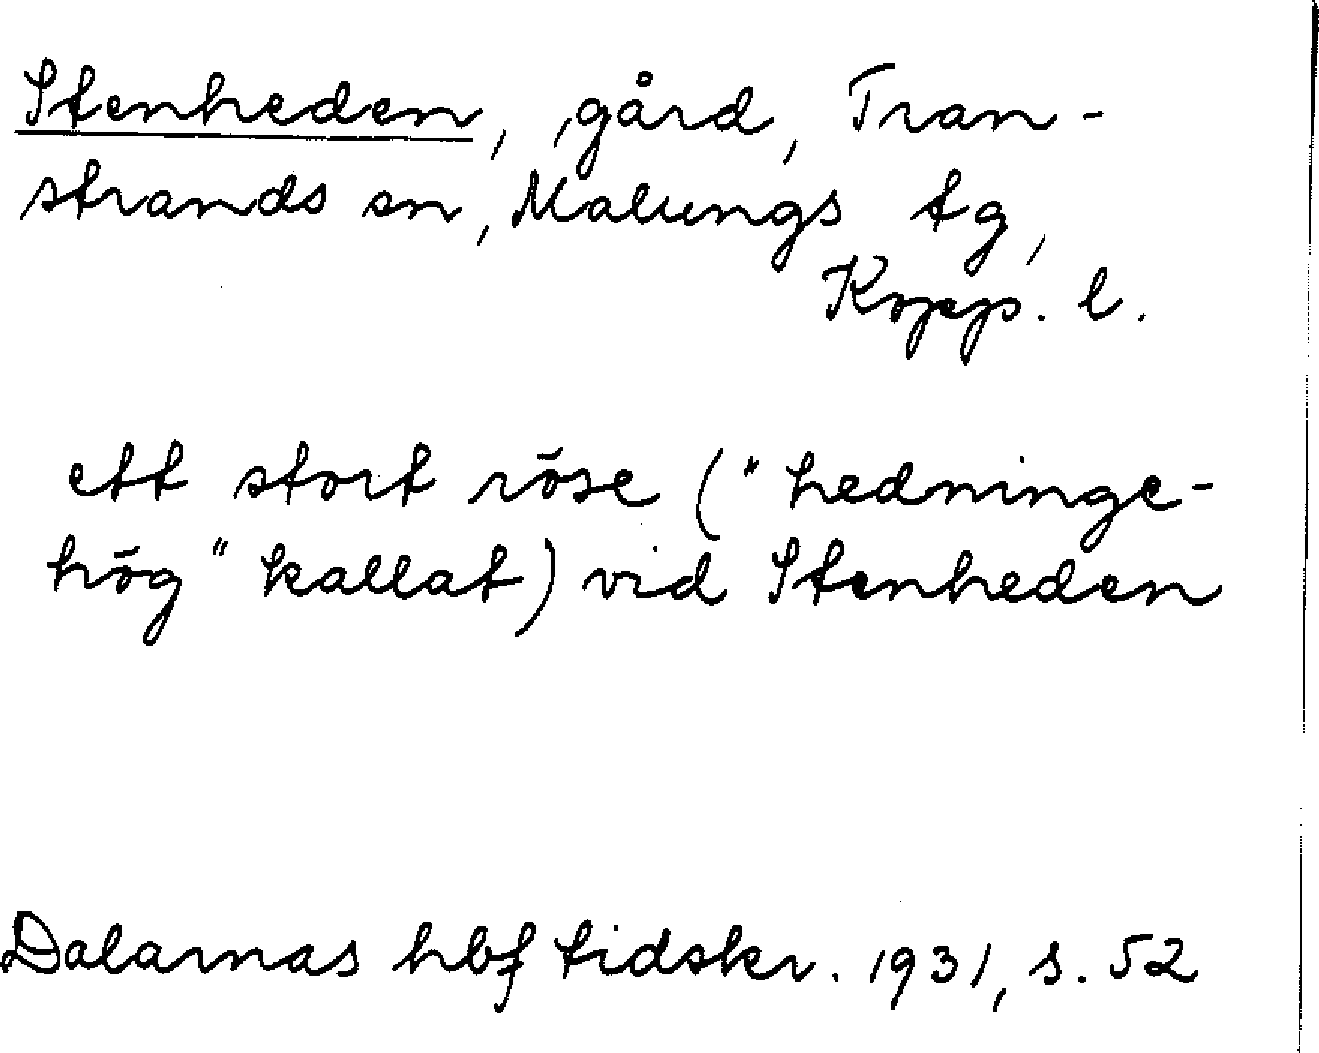 Stenheden, gård, Tran-
strands sn, Malungs tg,
Kopp. l.
ett stort röse ("hedninge-
hög" kallat) vid Stenheden
Dalarnas hbf tidskr. 1931, s. 52